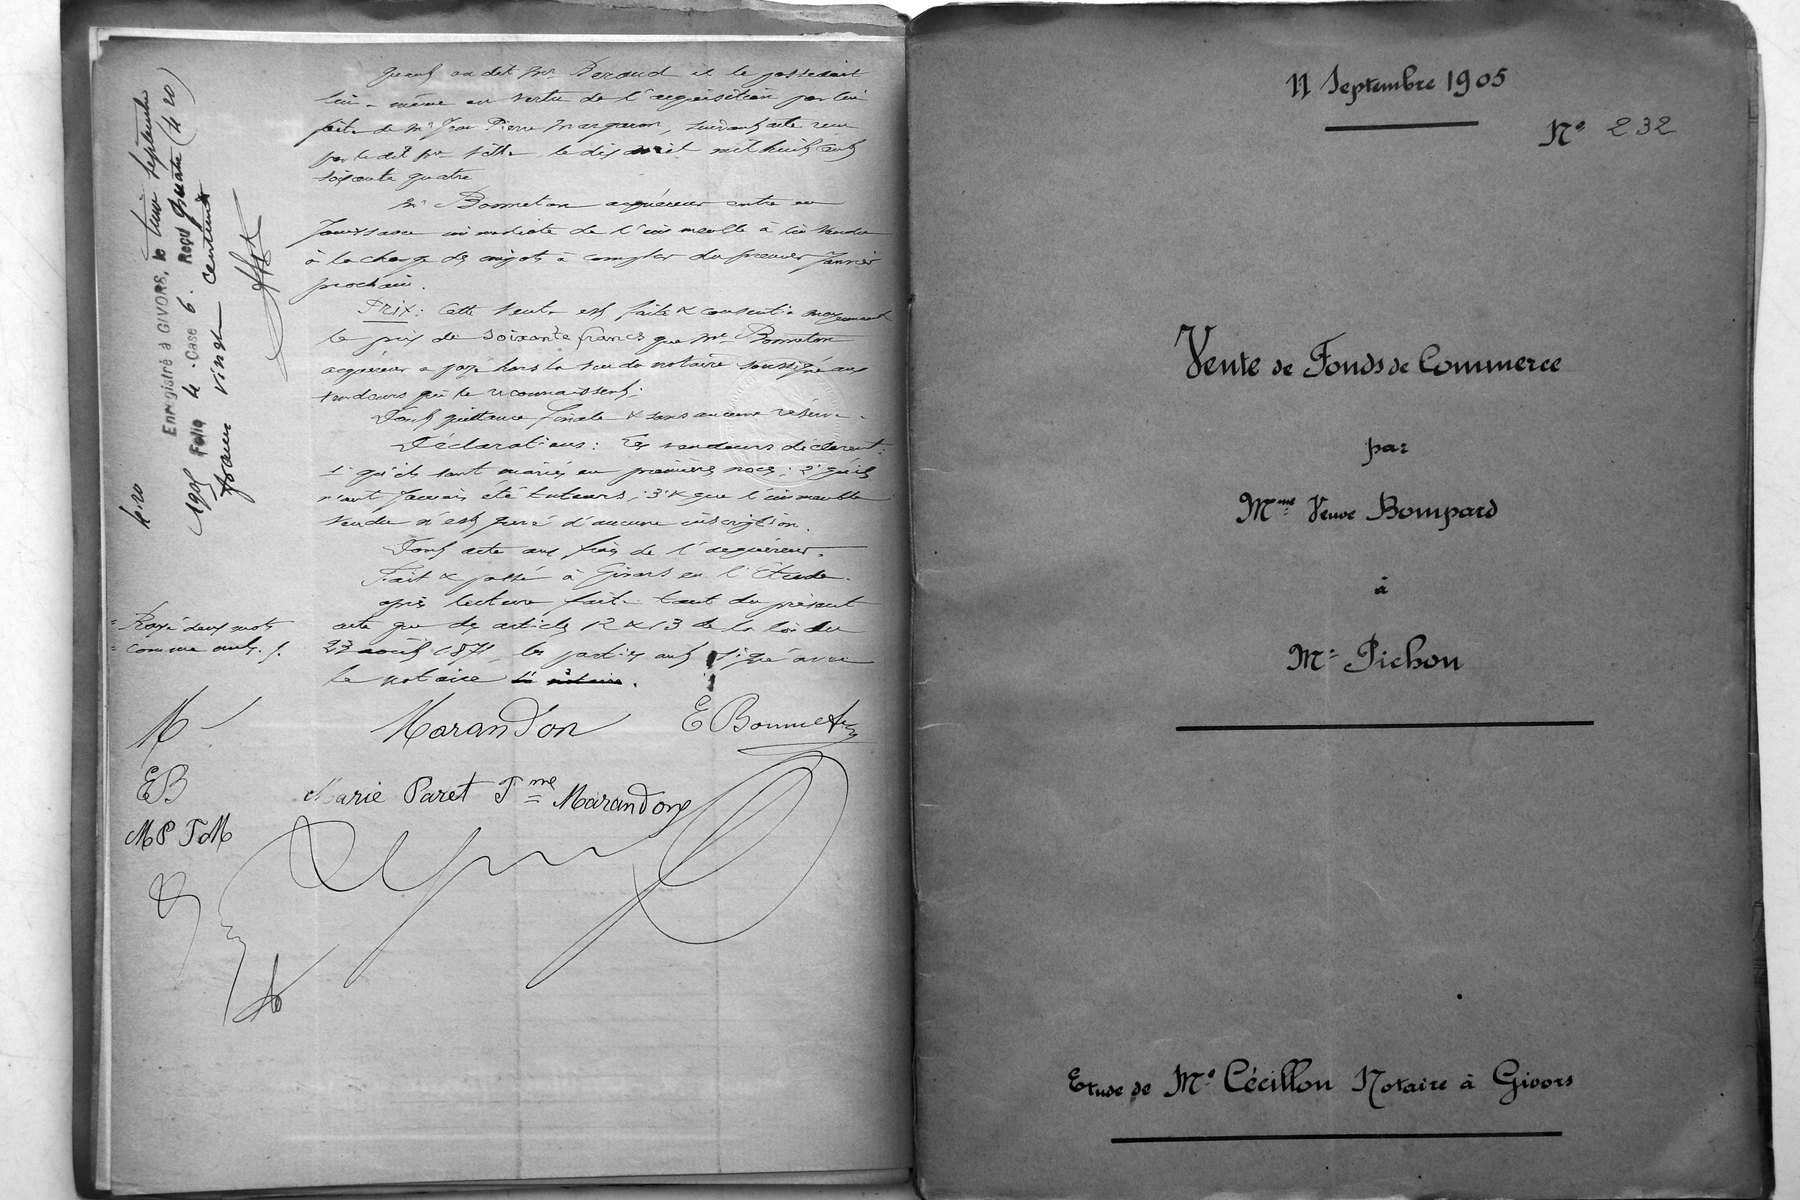 Quant au dit Mr Beraud il le possédait
lui-même en vertu de l'acquisition par lui
faite de Mr Jean Pierre suivant acte reçu
par le dit Me le dix avril mil huit cent
soixante quatre
Mr Bonneton acquéreur entre en
jouissance immédiate de l'immeuble à lui vendu
à la charge des impots à compter du premier Janvier
prochain.
Prix: Cette vente est faite & consentie moyennant
le prix de soixante francs que Mr Bonneton
acquéreur a payé hors la vue du notaire soussigné aux
vendeurs qui le reconnaissent;
Dont quittance finale & sans aucune réserve.
Déclarations: Les vendeurs déclarent:
1° qu'ils sont mariés en premières noces; 2° qu'ils
n'ont jamais été tuteurs; 3° & que l'immeuble
vendu n'est grevé d'aucune inscription.
Dont acte aux frais de l'acquéreur.
Fait & passé à Givors en l'Etude.
après lecture faite tant du présent
acte que des articles 12 & 13 de la loi du
23 août 1871, les parties ont signé avec
le notaire le notaire.
Marandon E Bonneton
Marie Paret Fme Marandon
Enregistré à GIVORS, le septembre
1905 Folio 4. Case 6. Reçu quatre (4 20)
francs vingt centimes
4.20
Rayé deux mots
comme nuls.
M
EB
MP FM
11 Septembre 1905
No 232
Vente de Fonds de Commerce
par
Mme Veuve Bompard
à
Mr Pichon
Etude de Me Cécillon Notaire à Givors